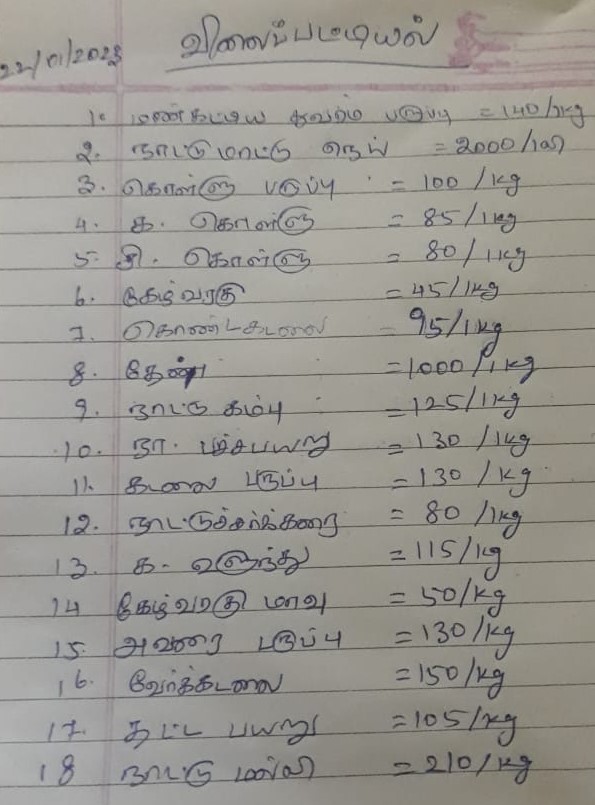 விலைப்பட்டியல்
22/01/2023
1. மண்கட்டிய துவரம் பருப்பு = 140/1kg
2. நாட்டு மாட்டு நெய் = 2000/1லி
3. கொள்ளு பருப்பு = 100/kg
4. க. கொள்ளு = 85/1kg
5. சி. கொள்ளு = 80/1kg
6. கேழ்வரகு = 45/1kg
7. கொண்டகடலை = 95/1kg
8. தேன் = 1000/1kg
9. நாட்டு கம்பு = 125/1kg
10. நா. பச்சபயறு = 130/1kg
11. கடலை பருப்பு = 130/kg
12. நாட்டுச்சர்க்கரை = 80/1kg
13. க. உளுந்து = 115/kg
14 கேழ்வரகு மாவு = 50/kg
15. அவரை பருப்பு = 130/kg
16. வேர்க்கடலை = 150/kg
17. தட்ட பயறு = 105/kg
18 நாட்டு மல்லி = 210/kg